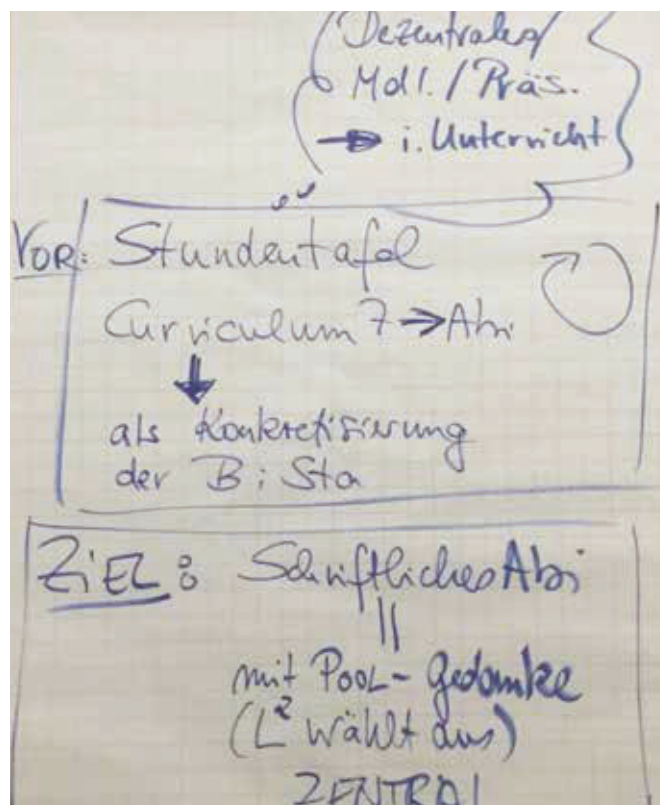 Dezentrales
Mdl. / Präs.
→ i. Unterricht
VOR: Stundentafel
Curriculum 7 → Abi
als Konkretisierung
der BiSta
ZIEL: Schriftliches Abi
mit POOL-Gedanke
(L² wählt aus)
ZENTRAL